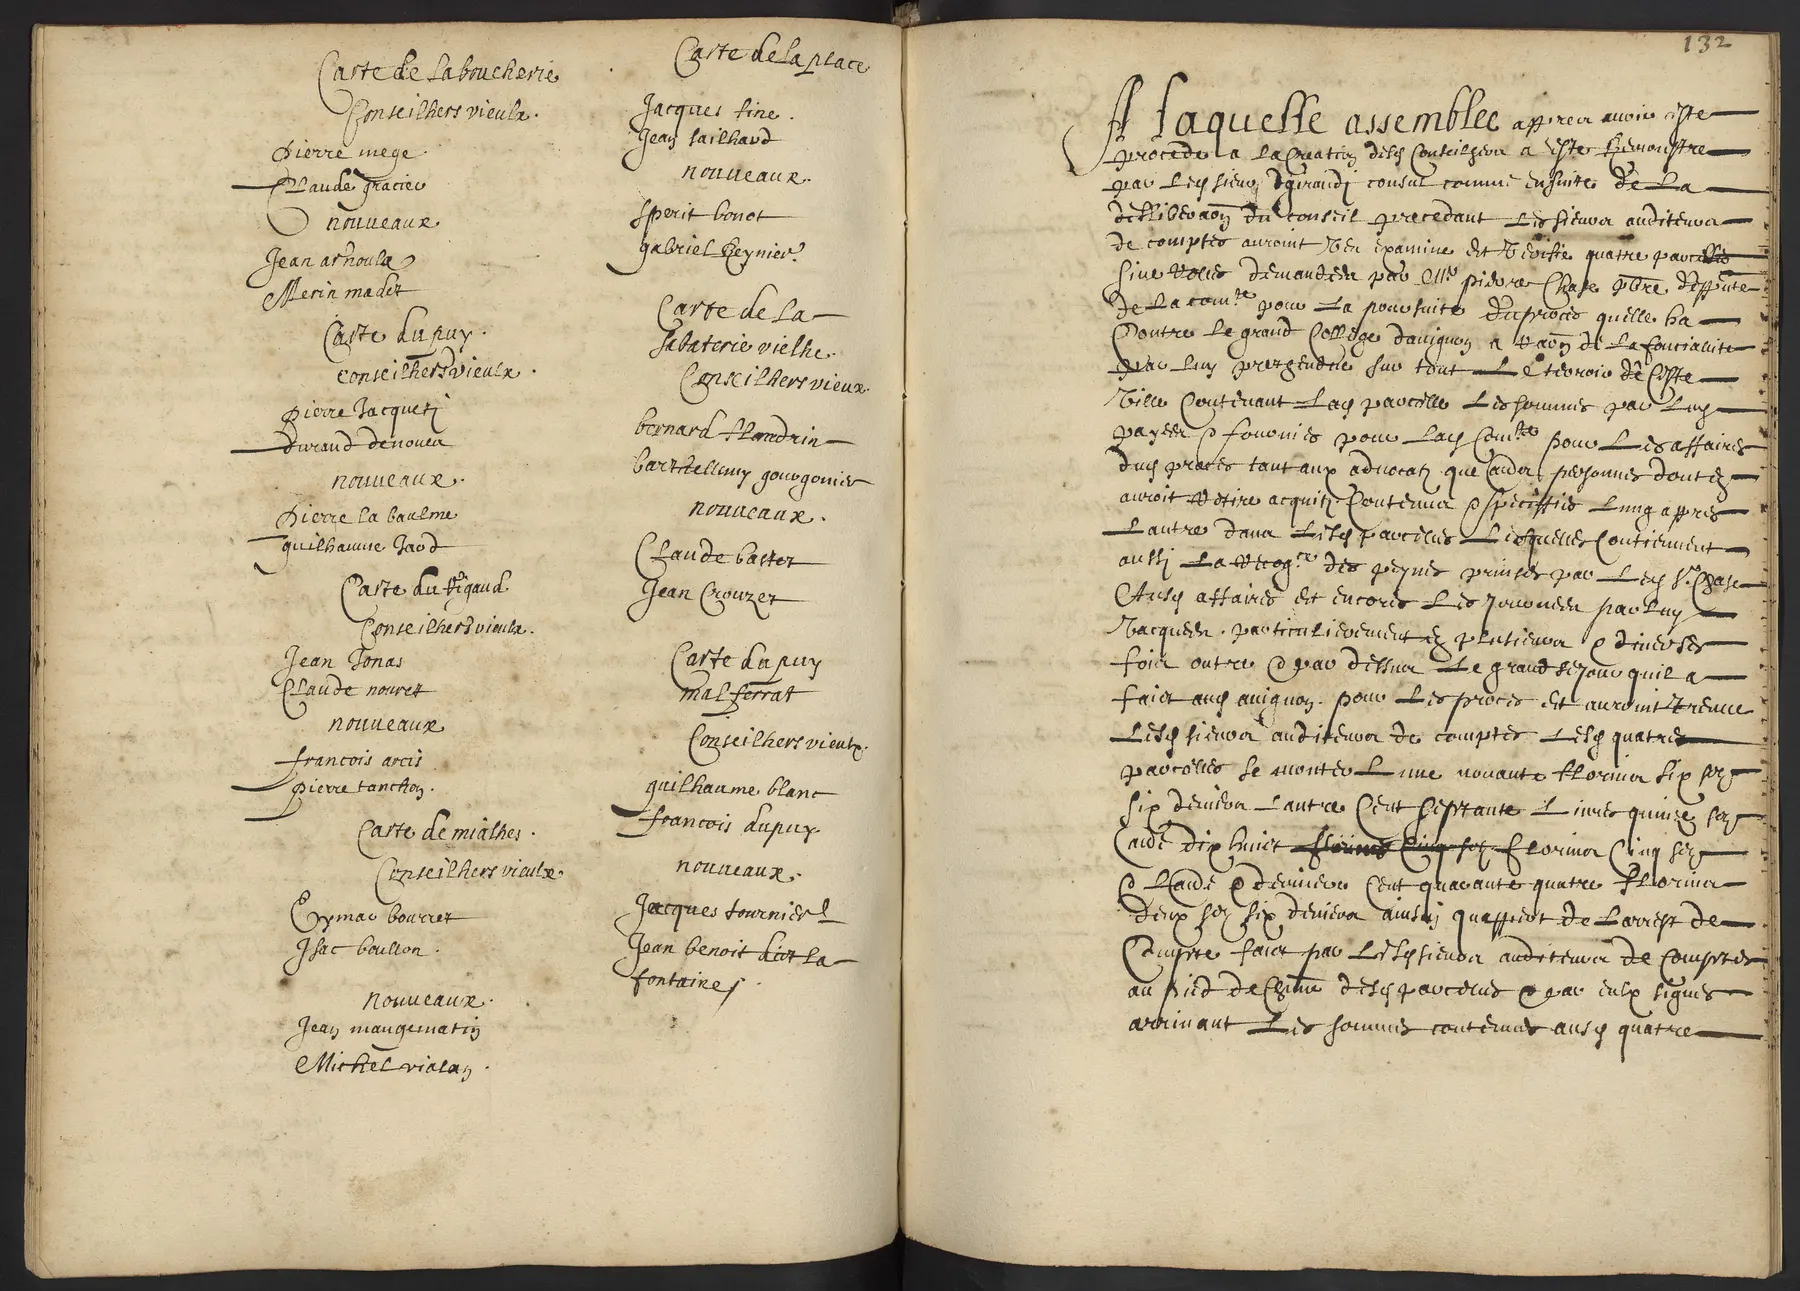 Carte de la boucherie
Conseilhers vieulx.
Pierre mege
Claude gracien
nouueaux
Jean arnoula
Merin madet
Carte du puy.
conseilhers vieulx.
Pierre Jacquetz
durand denouea
nouueaux.
Pierre la baulme
guilhaume Jard
Carte du Rigaud
Conseilhers vieulx.
Jean Jonas
Claude nouret
nouueaux
francois arcis
pierre tanchon.
Carte de mialhes.
Conseilhers vieulx
Eymar bourret
Isac boullon.
nouueaux.
Jean maugematin
Michel vialan.
Carte de la place
Jacques fine.
Jean failhard
nouueaux.
Sperit bonot
gabriel Reynier.
Carte de la
sabaterie vielhe.
Conseilhers vieux.
bernard flandrin
barthellemy gourgonier
nouueaux.
Claude bastet
Jean Crouzet
Carte du puy
mal ferrat
Conseilhers vieulx.
guilhaume blanc
francois dupuy.
nouueaux.
Jacques fournier
Jean benoit dict la
fontaine
132
A laquelle assemblee appres auoir este
procede a la Creation desd Conseilhers a este Remonstre
par led sieur consul comme ensuite de la
deliberaon du conseil precedant les sieurs auditeurs
de comptes auroint veu examine et veriffie quatre parcelles
sine rolles demandees par Mre pierre Chase pbre deppute
de la comte pour la poursuite du proces quelle ha
Contre le grand College dauignon a raon de la foncialite
par luy prethendue sur tout le teroir de Ceste
Ville Contenant lad parcelle les sommes par luy
payees & fournies pour lad Comte pour les affaires
dud proces tant aux aduocatz que autres personnes dont en
auroit retire acquitz Contenus & speciffies lung appres
lautre dans lesd parcelles lesquelles Contiennent
aussi la des peynes prinses par led Sr Chase
Ausd affaires et encores les journees par luy
vacquees particulierement en plusieurs & diuerses
fois outre & par dessus le grand sejour quil a
faict aud auignon pour les proces et auroint treuue
lesd sieurs auditeurs de comptes lesd quatre
parcelles se monter lune nonante florins six solz
six deniers lautre Cent septante liures quinze solz
dix huict florins Cinq solz florins Cinq solz
& deniers Cent quarante quatre florins
deux solz six deniers ainsin quappert de larrest de
Compte faict par lesd sieurs auditeurs de Comptes
au pied de Chune desd parcelles & par eulx signes
arrivant les sommes contenues ausd quatre